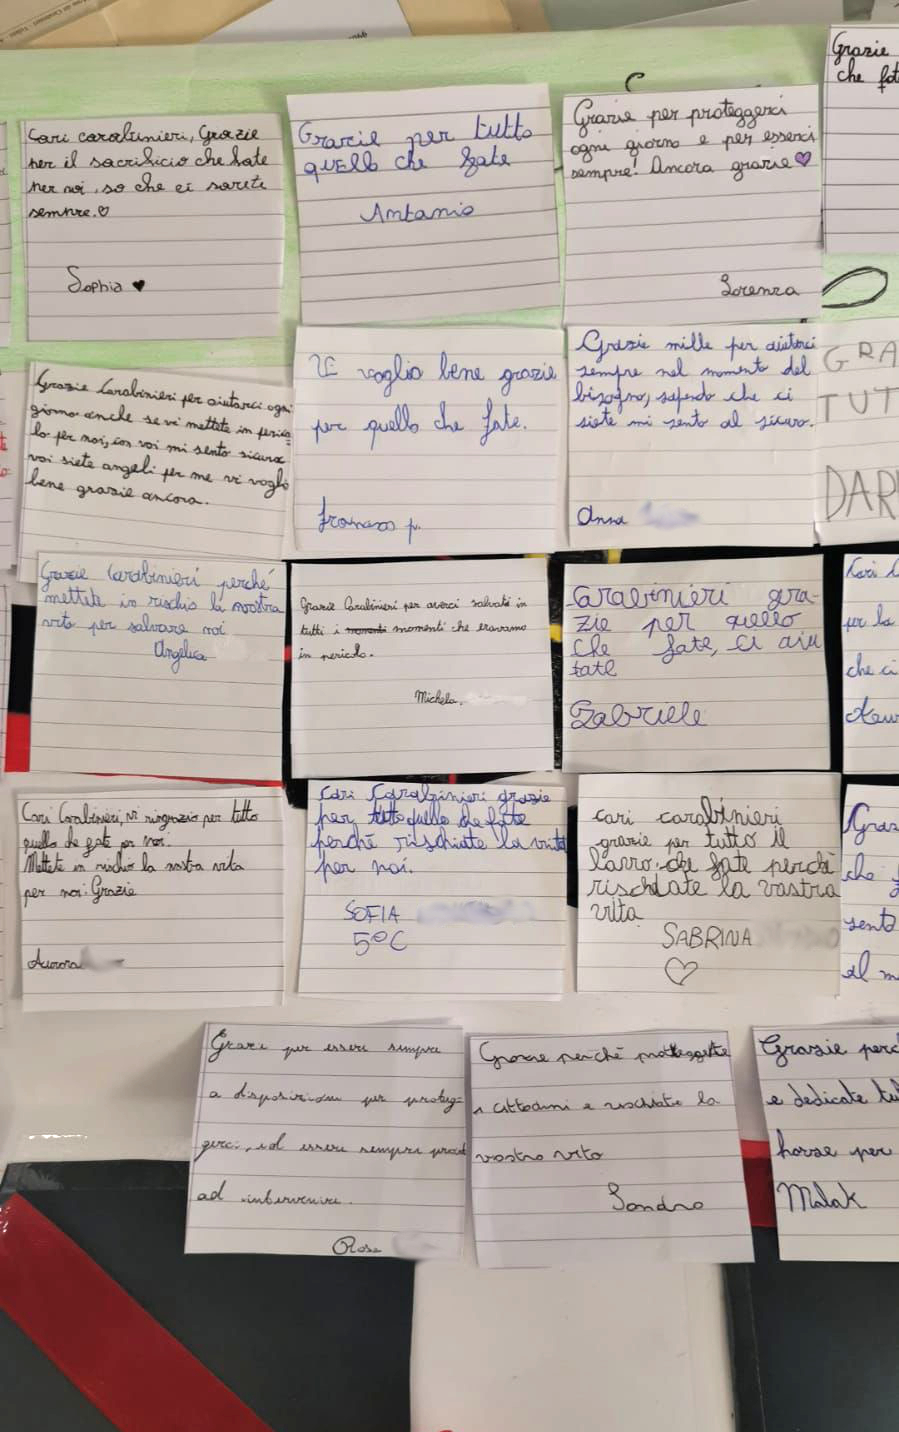 Cari carabinieri, Grazie
per il sacrificio che fate
per noi, so che ci sarete
sempre.
Sophia
Grazie per tutto
quello che fate
Antonio
Grazie per proteggerci
ogni giorno e per esserci
sempre! Ancora grazie
Lorenza
Grazie
che fat
Grazie Carabinieri per aiutarci ogni
giorno anche se vi mettete in perico
lo per noi, con voi mi sento sicura
voi siete angeli per me vi voglio
bene grazie ancora.
Vi voglio bene grazie
per quello che fate.
Francesco p.
Grazie mille per aiutarci
sempre nel momento del
bisogno, sapendo che ci
siete mi sento al sicuro.
Anna
GRA
TUT
DAR
Grazie Carabinieri perché
mettete in rischio la vostra
vita per salvare noi
Angelica
Grazie Carabinieri per averci salvato in
tutti i momenti che eravamo
in pericolo.
Michela.
Carabinieri gra-
zie per quello
che fate, ci aiu
tate
Gabriele
Cari
per la
che ci
Cari Carabinieri, vi ringrazio per tutto
quello che fate per noi.
Mettete in rischio la vostra vita
per noi. Grazie
Aurora
Cari Carabinieri grazie
per tutto quello che fate
perché rischiate la vita
per noi.
SOFIA
5°C
cari carabinieri
grazie per tutto il
lavro che fate perché
rischiate la vostra
vita
SABRINA
Graz
che
sento
al m
Grazie per essere sempre
a disposizione per proteg-
gerci, ed essere sempre pronti
ad intervenire.
Rosa
Grazie perché proteggete
i cittadini e rischiate la
vostra vita
Sandro
Grazie perc
e dedicate
horse per
Malak